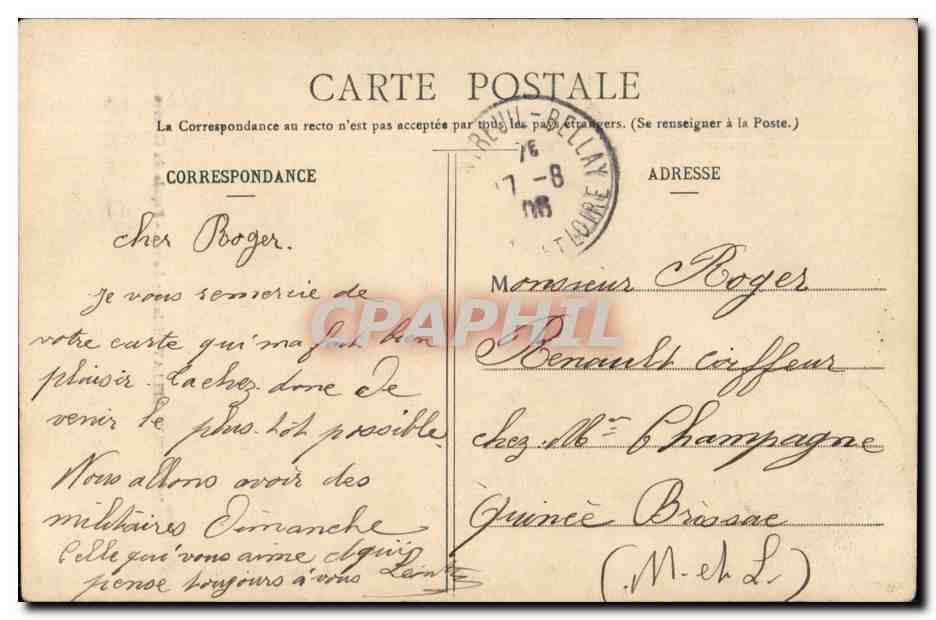 CARTE POSTALE
La Correspondance au recto n'est pas acceptée par tous les pays étrangers. (Se renseigner à la Poste.)
CORRESPONDANCE
cher Roger.
Je vous remercie de
votre carte qui m'a fait bien
plaisir. Tachez donc de
venir le plus tôt possible
Nous allons avoir des
militaires Dimanche
Celle qui vous aime et qui
pense toujours à vous
TREUIL-BELLAY
7E
17 -8
06
ET LOIRE
ADRESSE
Monsieur Roger
Renault coiffeur
chez Mr Champagne
Quincé Brissac
(M. et L.)
CPAPHIL